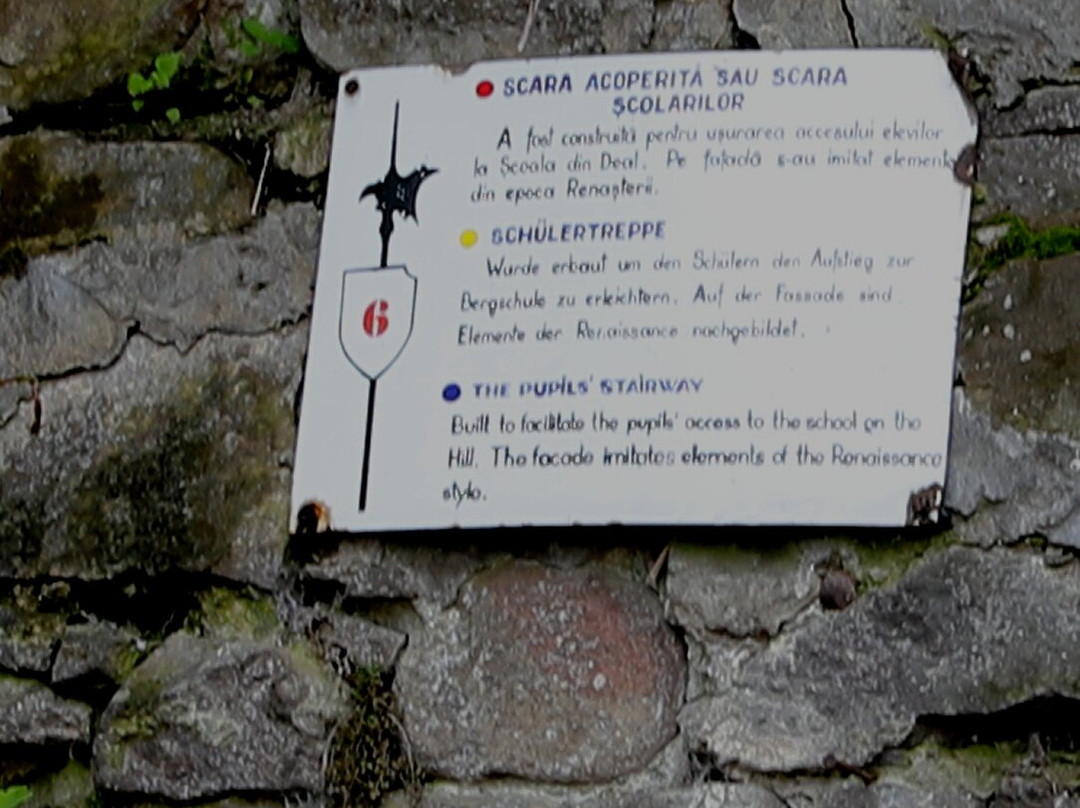 SCARA ACOPERITĂ SAU SCARA
ȘCOLARILOR
A fost construită pentru ușurarea accesului elevilor
la Școala din Deal. Pe fațadă s-au imitat elemente
din epoca Renașterii.
SCHÜLERTREPPE
Wurde erbaut um den Schülern den Aufstieg zur
Bergschule zu erleichtern. Auf der Fassade sind
Elemente der Renaissance nachgebildet.
6
THE PUPILS' STAIRWAY
Built to facilitate the pupils' access to the school on the
Hill. The facade imitates elements of the Renaissance
style.